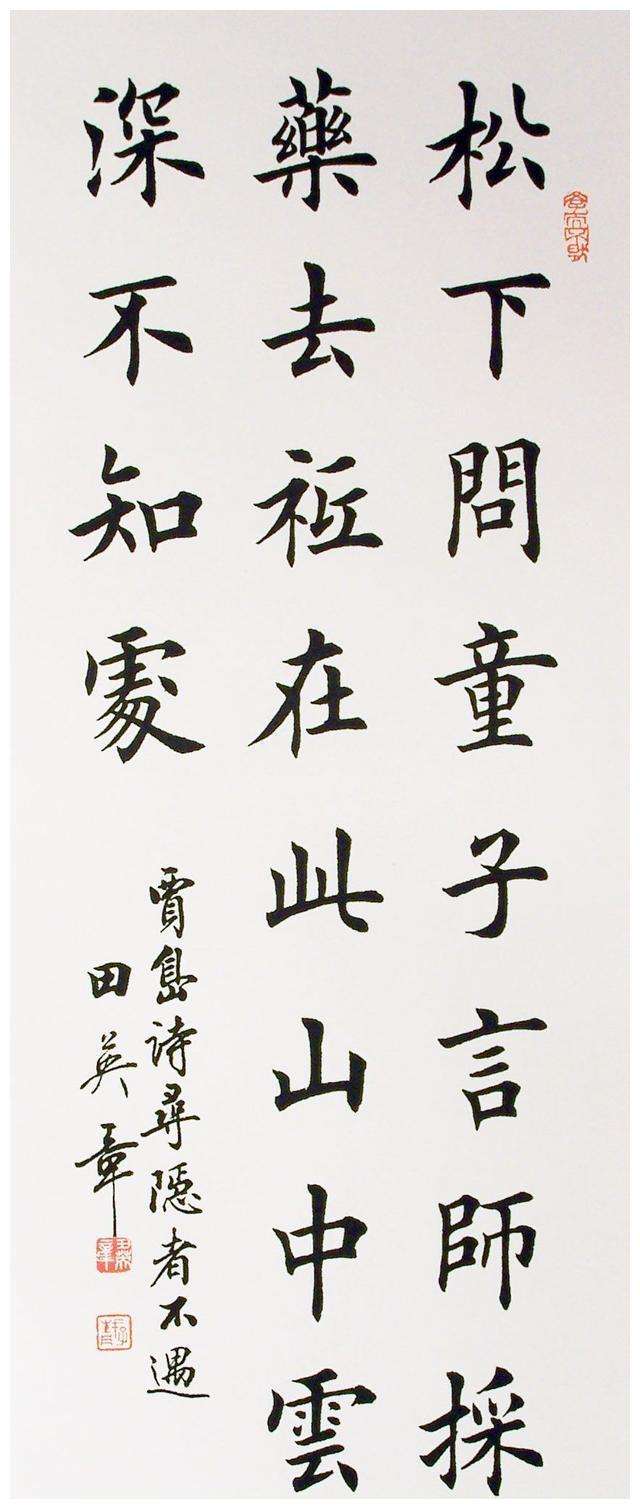 松下問童子言師採
藥去秖在此山中雲
深不知處
賈島詩尋隱者不遇
田英章